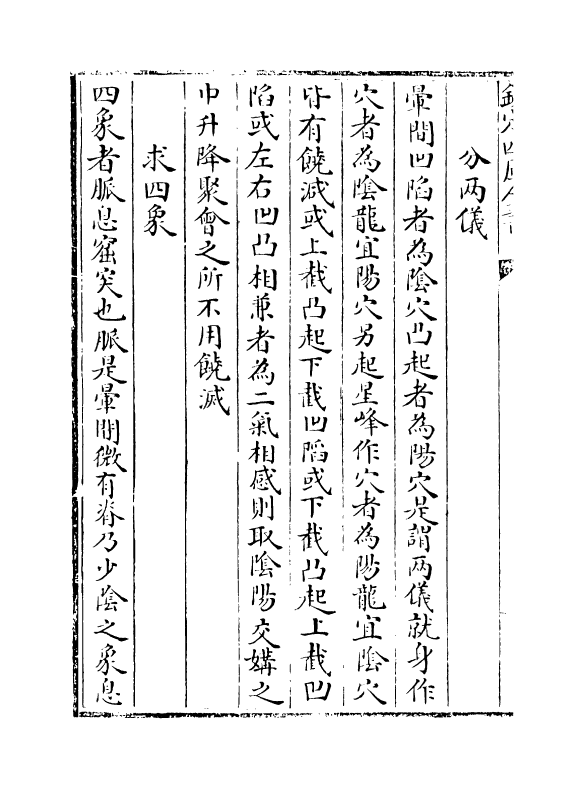 分兩儀
暈間凹陷者為陰穴凸起者為陽穴是謂兩儀就身作
穴者為陰龍宜陽穴另起星峰作穴者為陽龍宜陰穴
皆有饒減或上截凸起下截凹陷或下截凸起上截凹
陷或左右凹凸相兼者為二氣相感則取陰陽交媾之
中升降聚會之所不用饒減
求四象
四象者脈息窟突也脈是暈間微有脊乃少陰之象息